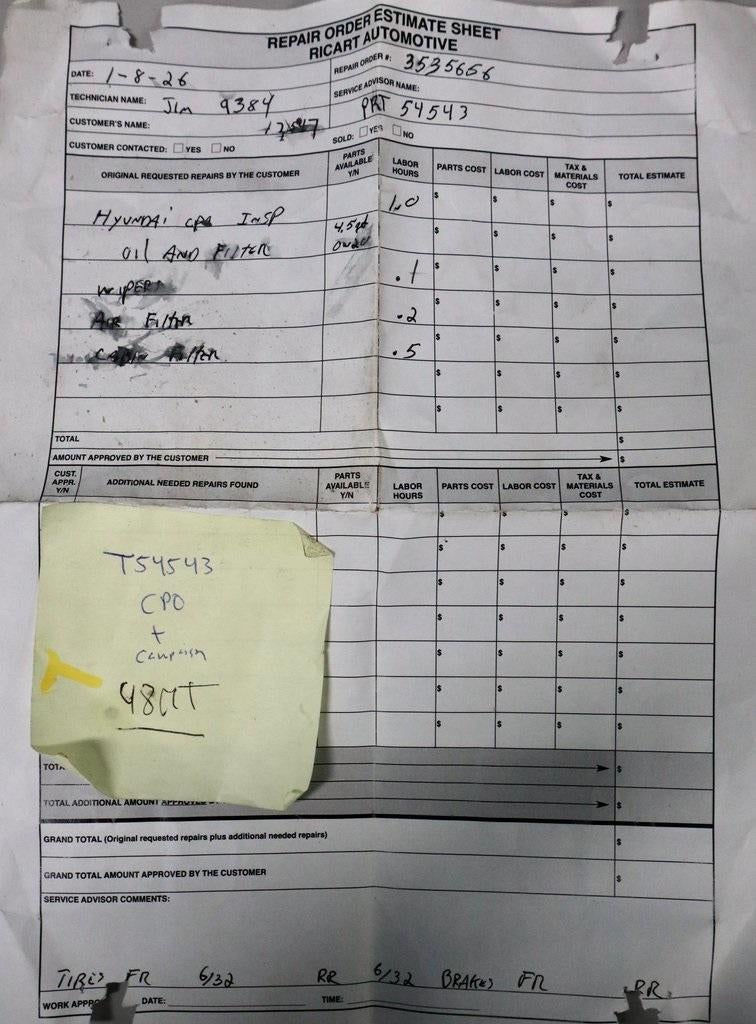 REPAIR ORDER ESTIMATE SHEET
RICART AUTOMOTIVE
DATE: 1-8-26
REPAIR ORDER #: 3535656
TECHNICIAN NAME: Jim 9384
SERVICE ADVISOR NAME:
PRT 54543
CUSTOMER'S NAME:
CUSTOMER CONTACTED: YES NO
SOLD: YES NO
ORIGINAL REQUESTED REPAIRS BY THE CUSTOMER PARTS AVAILABLE Y/N LABOR HOURS PARTS COST LABOR COST TAX & MATERIALS COST TOTAL ESTIMATE
HYUNDAI CPO INSP 1.0 $ $ $ $
OIL AND FILTER 4.5qt 0w20 $ $ $ $
WIPERS .1 $ $ $ $
AIR FILTER .2 $ $ $ $
CABIN FILTER .5 $ $ $ $
$ $ $ $
$ $ $ $
TOTAL $
AMOUNT APPROVED BY THE CUSTOMER $
CUST. APPR. Y/N ADDITIONAL NEEDED REPAIRS FOUND PARTS AVAILABLE Y/N LABOR HOURS PARTS COST LABOR COST TAX & MATERIALS COST TOTAL ESTIMATE
$ $ $ $
$ $ $ $
$ $ $ $
$ $ $ $
$ $ $ $
$ $ $ $
$ $ $ $
T54543
CPO
+
Campaign
48MT
TOTA $
TOTAL ADDITIONAL AMOUNT APPROVED $
GRAND TOTAL (Original requested repairs plus additional needed repairs) $
GRAND TOTAL AMOUNT APPROVED BY THE CUSTOMER $
SERVICE ADVISOR COMMENTS:
TIRES FR 6/32 RR 6/32 BRAKES FR RR
WORK APPRO DATE: TIME: